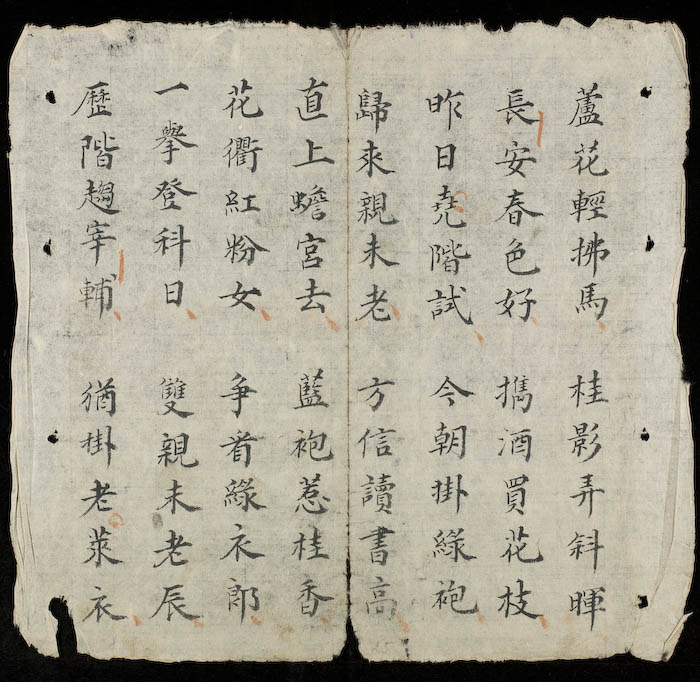 蘆花輕拂馬 桂影弄斜暉
長安春色好 携酒買花枝
昨日堯階試 今朝掛綠袍
歸來親未老 方信讀書高
直上蟾宮去 藍袍惹桂香
花衢紅粉女 争看綠衣郎
一舉登科日 雙親未老辰
歷階趨宰輔 猶掛老萊衣